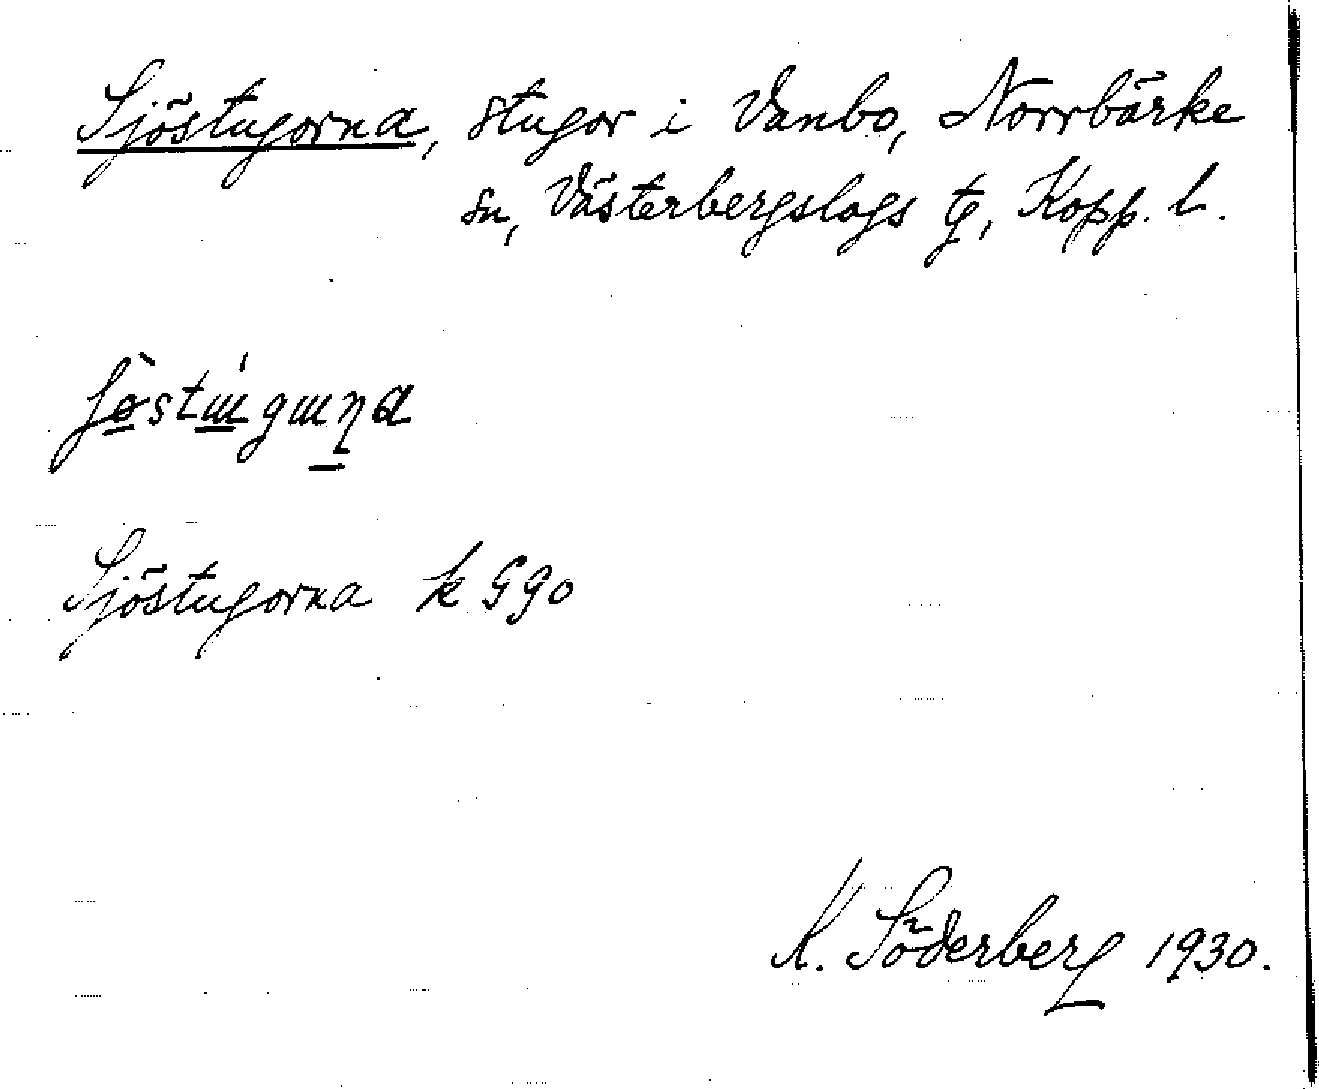 Sjöstugorna, stugor i Vanbo, Norrbärke
sn, Västerbergslags tg, Kopp. l.
Sjöstugorna k Ggo
K. Söderberg 1930.